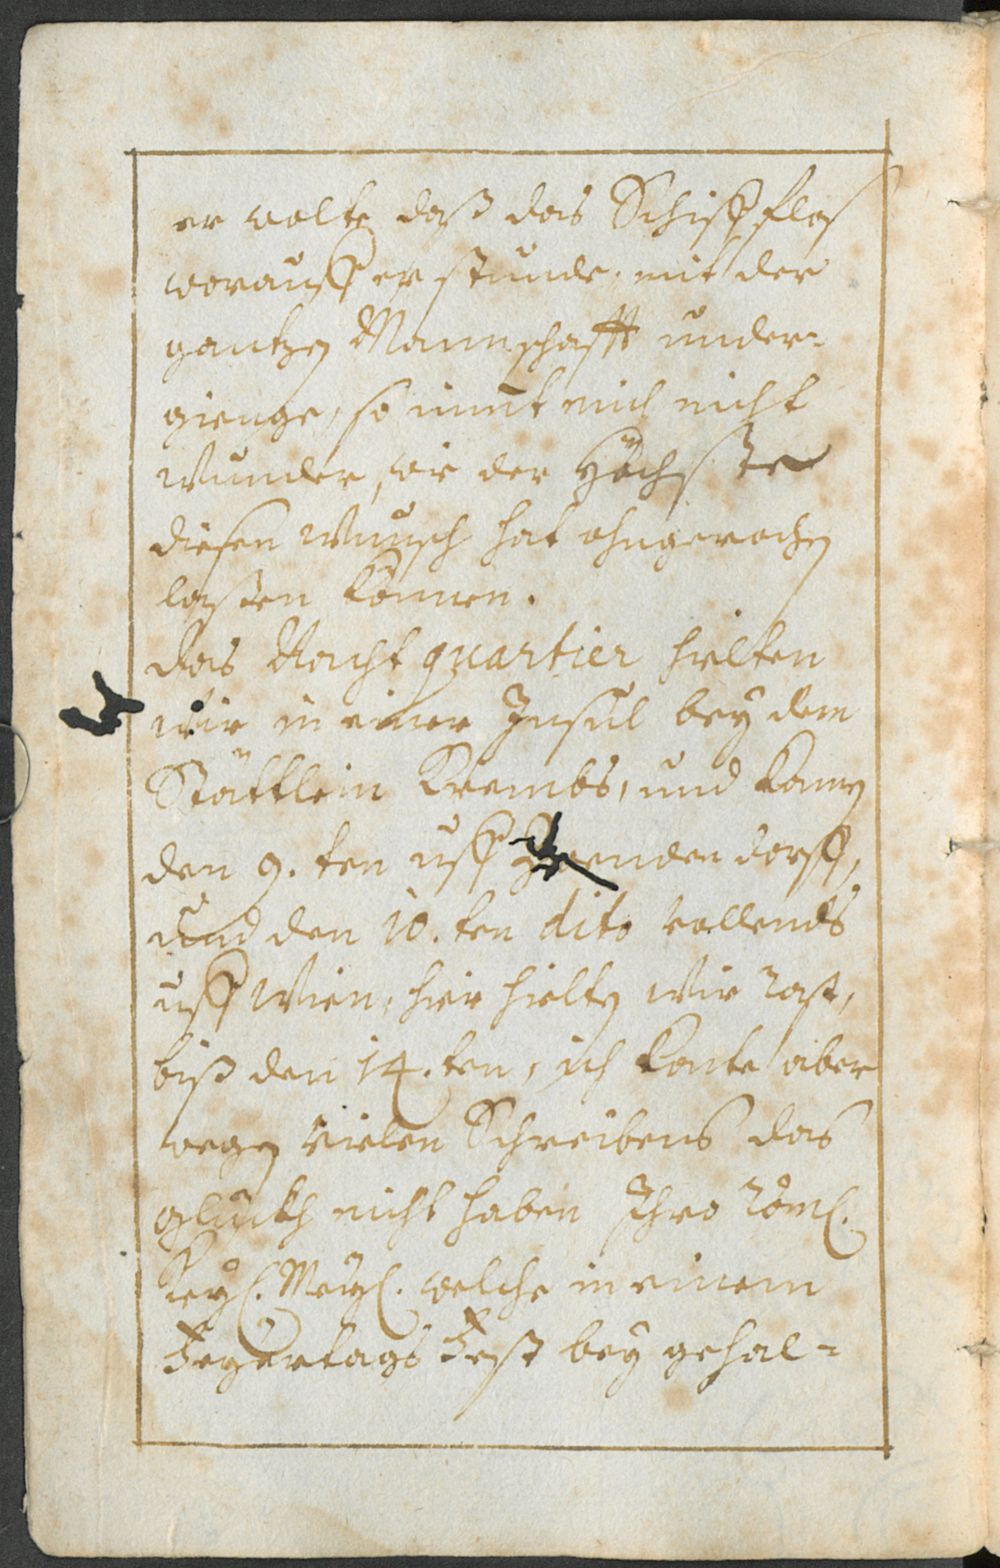 er wolte daß das Schiff floß
worauff er stunde, mit der
gantzen Mannschafft under-
gienge, so nimt mich nicht
Wunder, wie der Höchste
diesen Wunsch hat ohngerochen
lassen können.
Das Nacht quartier hielten
wir in einer Insul bey dem
Stättlein Krembs, und kamen
den 9. ten uff dorff,
und den 10. ten dito vollends
uff Wien, hier hielten wir rast,
biß den 14. ten, ich konte aber
wegen vielen Schreibens das
glückh nicht haben Ihro Röml.
Keyl. Meyl. welche in einem
Feyertags Fest bey gehal-